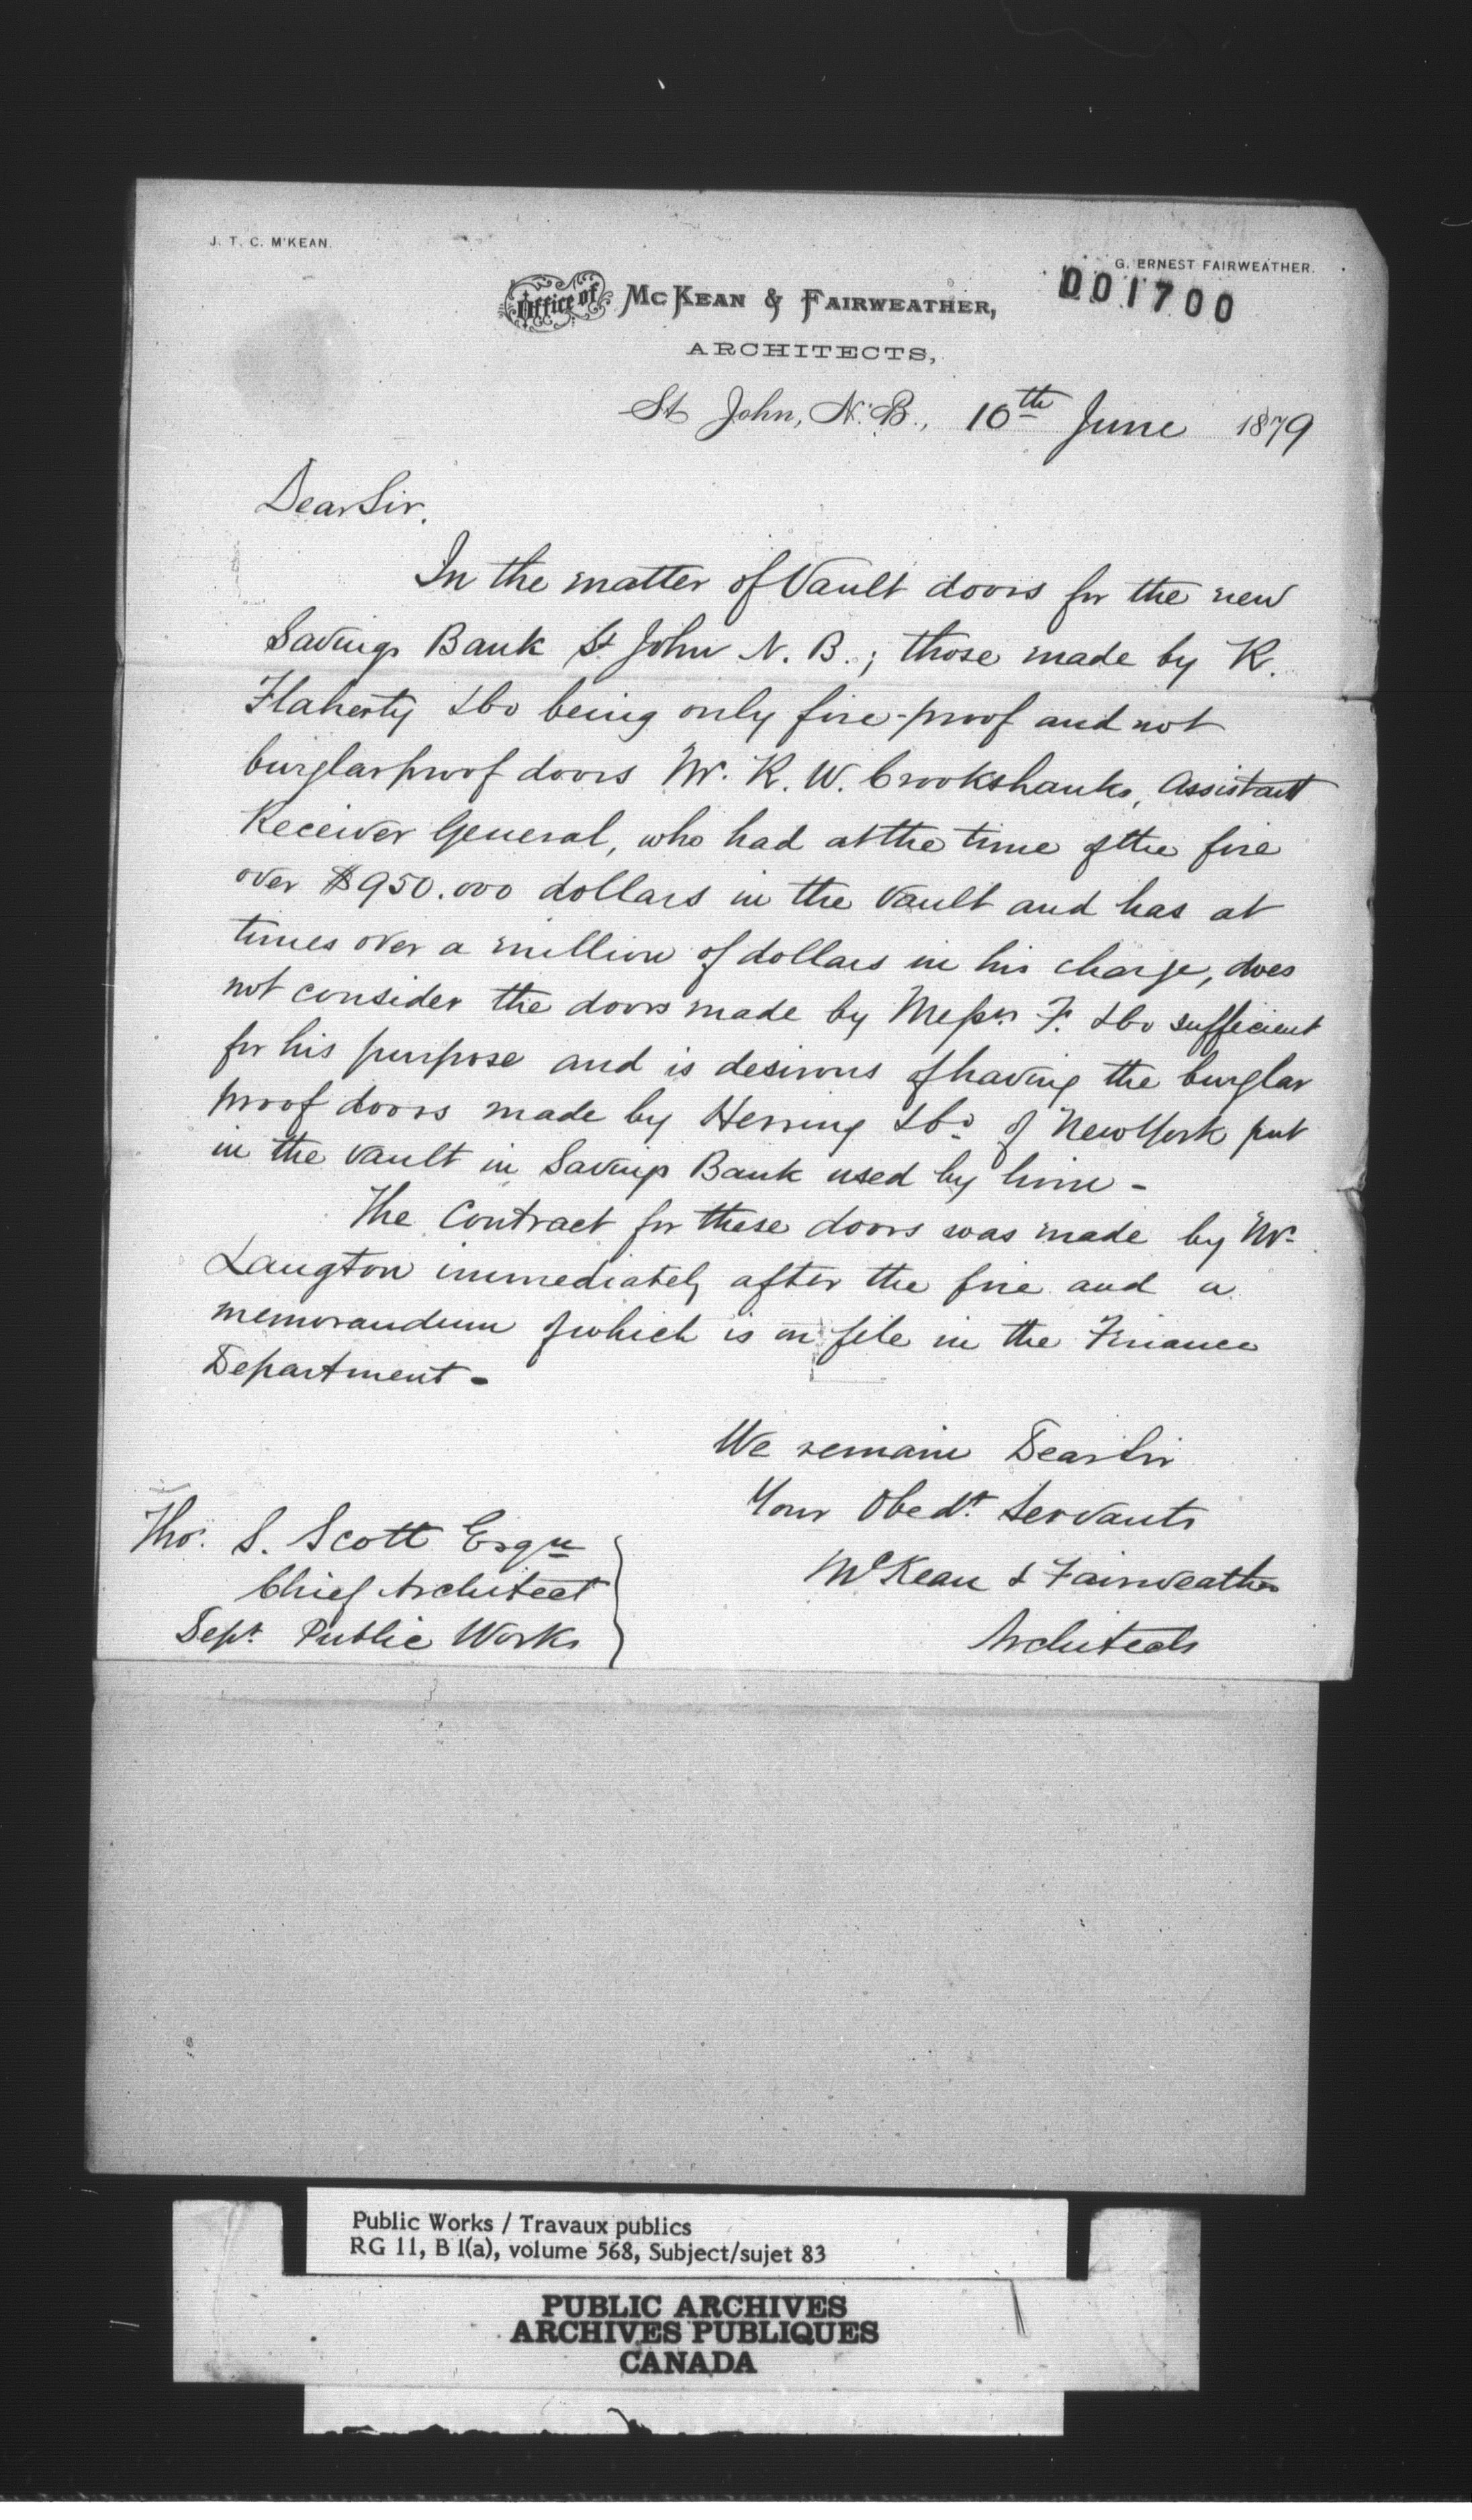 J. T. C. M'KEAN.
G. ERNEST FAIRWEATHER.
001700
Office of McKEAN & FAIRWEATHER,
ARCHITECTS,
St John, N.B., 10th June 1879
Dear Sir.
In the matter of Vault doors for the new
Savings Bank St John N. B.; those made by K.
Flaherty & Co being only fire-proof and not
burglarproof doors Mr. K. W. Crookshank, Assistant
Receiver General, who had at the time of the fire
over $950.000 dollars in the vault and has at
times over a million of dollars in his charge, does
not consider the doors made by Messrs F. & Co sufficient
for his purpose and is desirous of having the burglar
proof doors made by Herring & Co. of New York put
in the vault in Savings Bank used by him -
The Contract for these doors was made by Mr
Langton immediately after the fire and a
memorandum of which is on file in the Finance
Department -
We remain Dear Sir
Your Obedt. Servants
McKean & Fairweather
Architects
Thos. S. Scott Esqre
Chief Architect
Dept. Public Works
Public Works / Travaux publics
RG 11, B 1(a), volume 568, Subject/sujet 83
PUBLIC ARCHIVES
ARCHIVES PUBLIQUES
CANADA